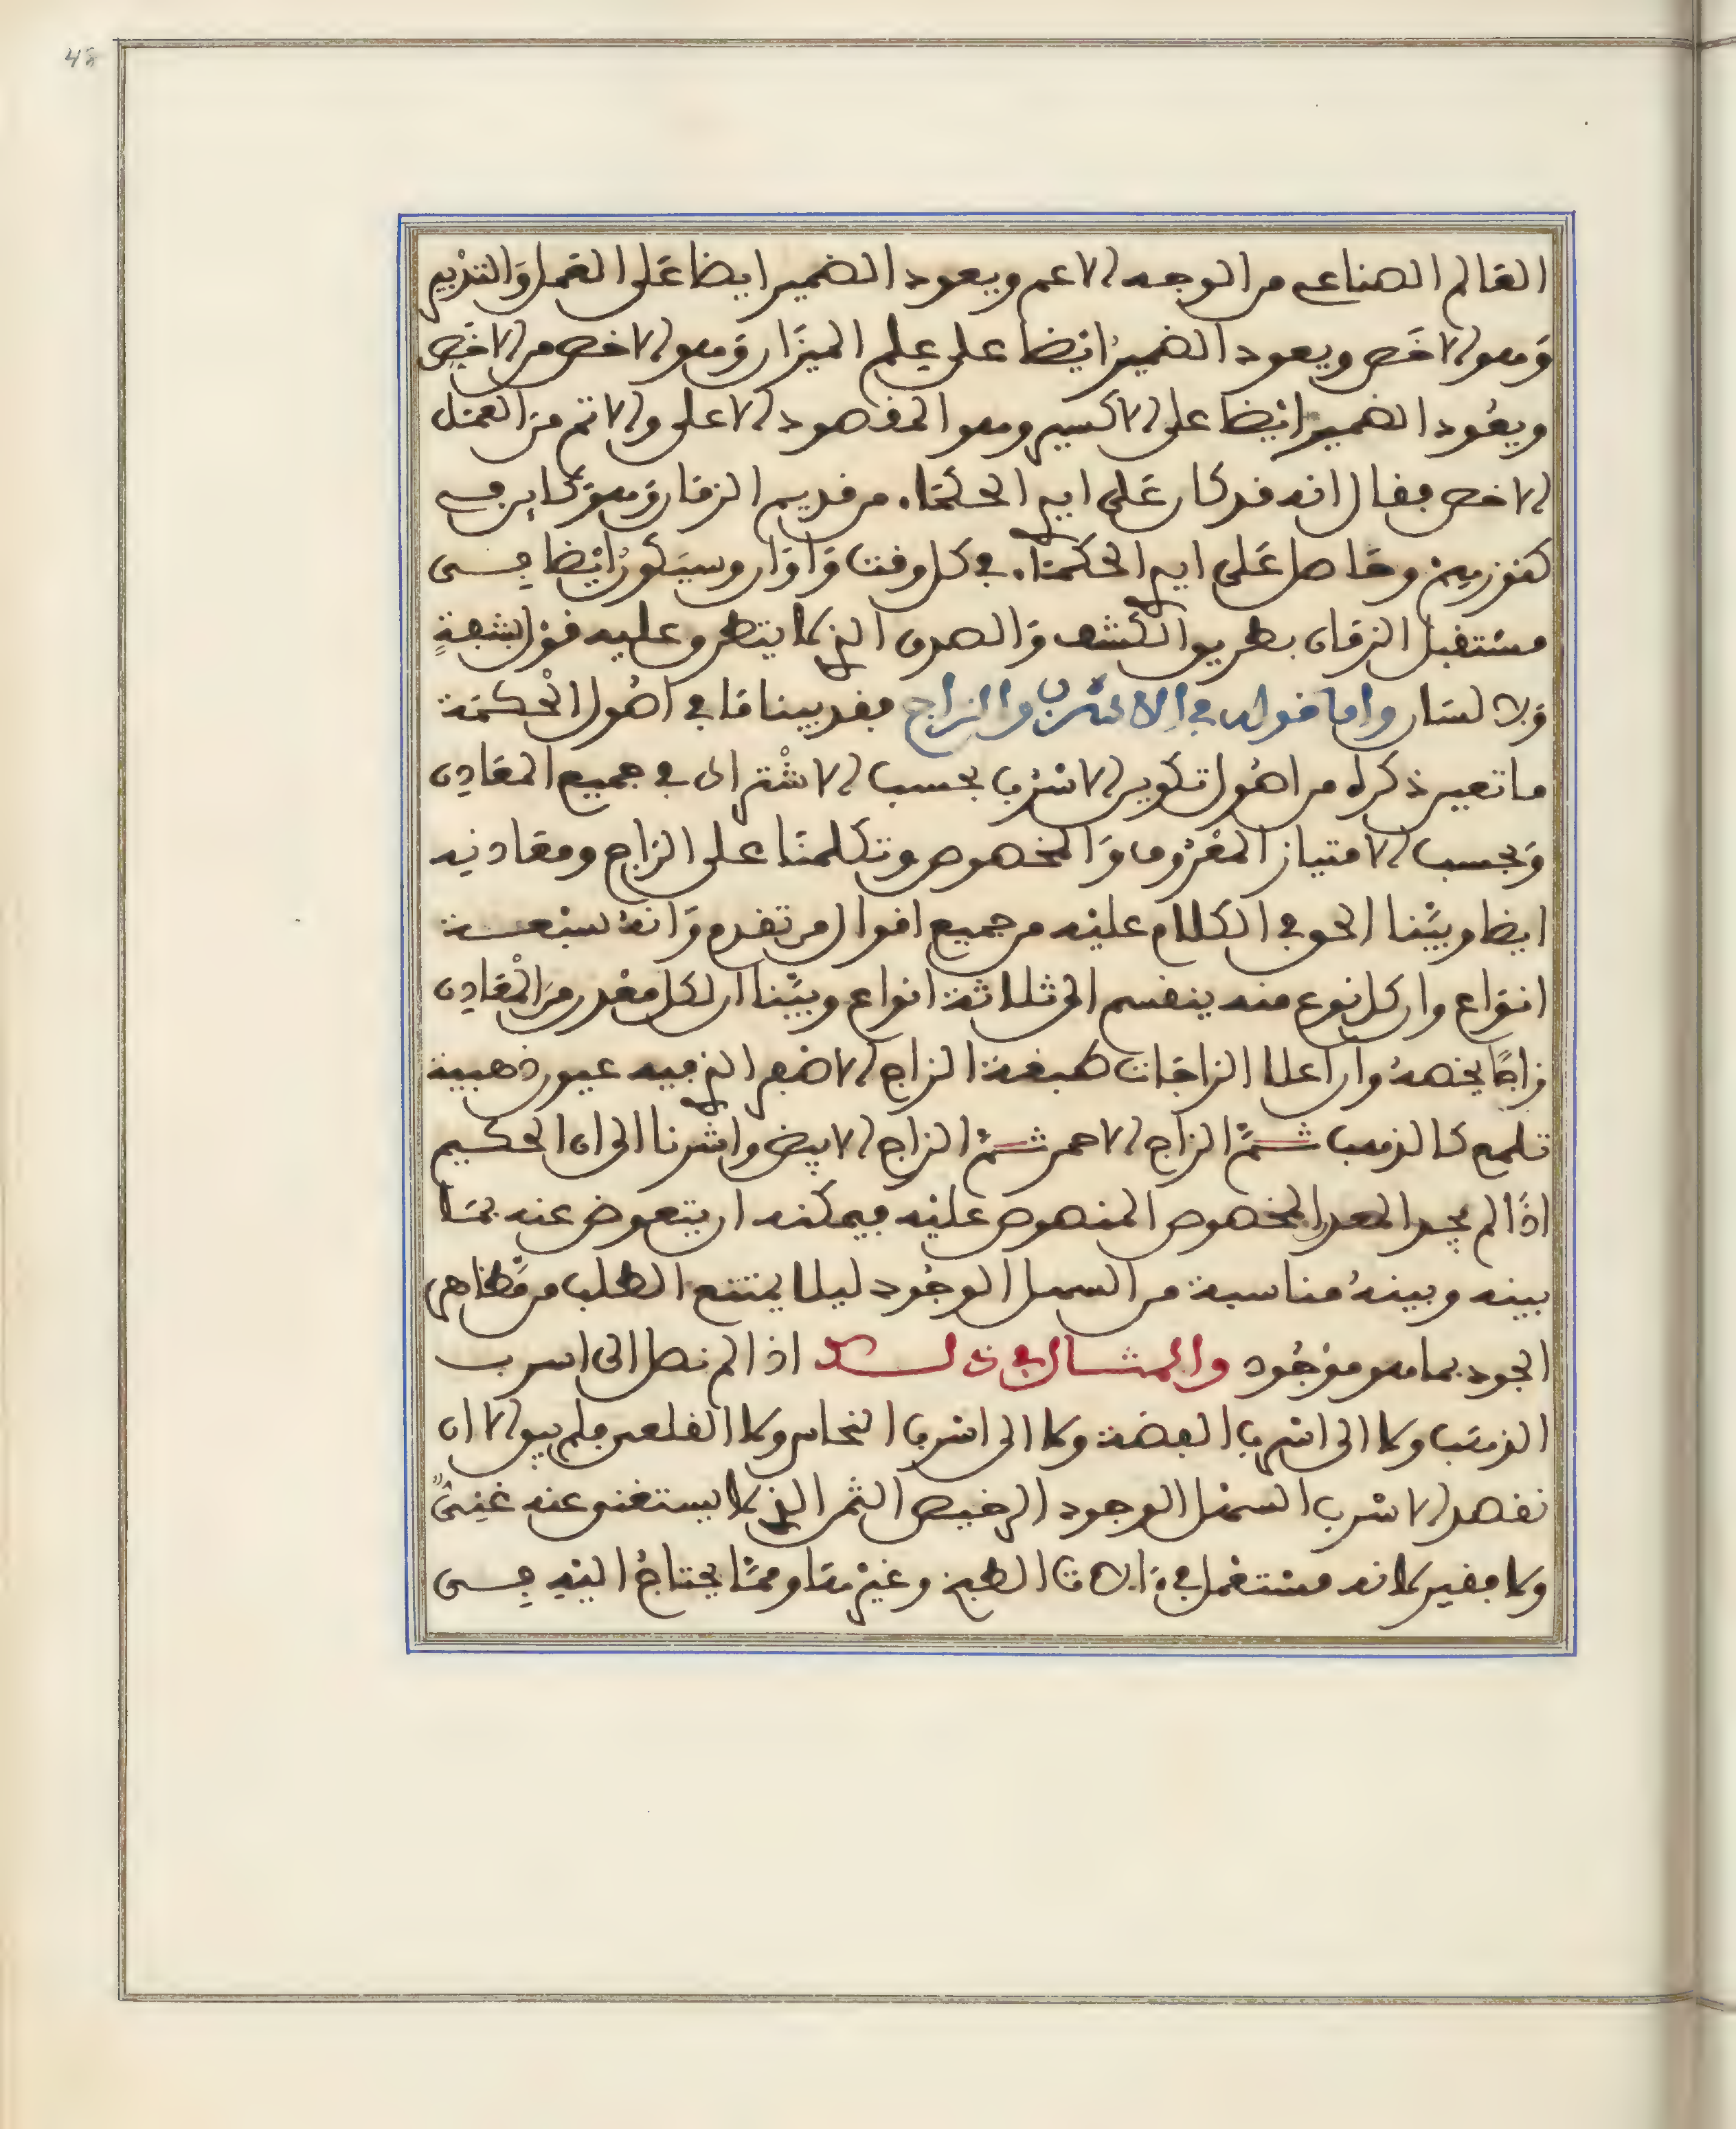 48
العالم الصناعي من الوجه الاعم ويعود الضمير ايضا على العمل والتدبير
وهو الاخص ويعود الضمير ايضا على علم الميزان وهو الاخص من الاخص
ويعود الضمير ايضا على الاكسير وهو المقصود الاعلى والاتم من العمل
الاخص فقال انه قد كان على ايدي الحكماء من قديم الزمان وهو كاين في
كنوزهم وحاصل على ايدي الحكماء في كل وقت واوان وسيكون ايضا في
مستقبل الزمان بطريق الكشف والصدق الذي لا يتطرق عليه قول بشبهة
ولا لسان واما قوله في الاسرب والزاج فقد بينا ما في اصول الحكمة
ما تعين ذكره من اصول تكوين الاسرب بحسب الاشتراك في جميع المعادن
وبحسب الامتياز المعروف والمخصوص وتكلمنا على الزاج ومعادنه
ايضا وبينا الحق في الكلام عليه من جميع اقوال من تقدم وانه سبعة
انواع وان كل نوع منه ينقسم الى ثلاثة انواع وبينا ان لكل معدن من المعادن
زاجا يخصه وان اعلا الزاجات صبغة الزاج الاصفر الذي فيه عيون ذهبية
تلمع كالذهب ثم الزاج الاحمر ثم الزاج الابيض واشرنا الى ان الحكيم
اذا لم يجد المعدن المخصوص المنصوص عليه فيمكنه ان يتعوض عنه بما
بينه وبينه مناسبة من السهل الوجود ليلا يمتنع الطلب من مظاهر
الجود بما هو موجود والمثال في ذلك اذا لم نصل الى اسرب
الذهب ولا الى اسرب الفضة ولا الى اسرب النحاس ولا القلعي فلم يبق الا ان
نقصد الاسرب السهل الوجود الرخيص الثمن الذي لا يستغني عنه غني
ولا فقير لانه مستعمل في الات الطبخ وغيرها ومما يحتاج اليه في